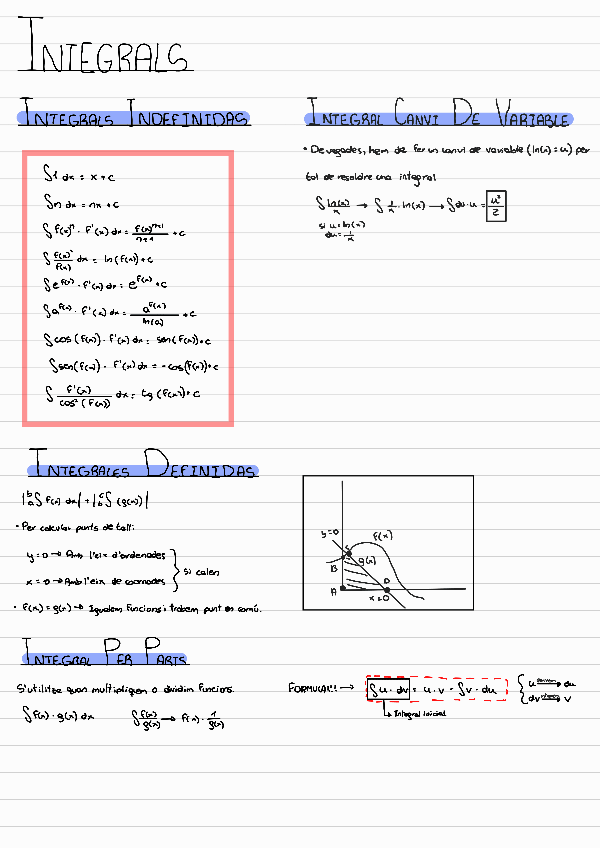 INTEGRALS
INTEGRALS INDEFINIDAS
∫1 dx = x + c
∫n dx = nx + c
∫f(x)ⁿ · f'(x) dx = f(x)ⁿ⁺¹/n+1 + c
∫f(x)'/f(x) dx = ln(f(x)) + c
∫e^f(x) · f'(x) dx = e^f(x) + c
∫a^f(x) · f'(x) dx = a^f(x)/ln(a) + c
∫cos(f(x)) · f'(x) dx = sen(f(x)) + c
∫sen(f(x)) · f'(x) dx = -cos(f(x)) + c
∫ f'(x)/cos²(f(x)) dx = tg(f(x)) + c
INTEGRAL CANVI DE VARIABLE
• De vegades, hem de fer un canvi de variable (ln(x) = u) per
tal de resoldre una integral
∫ ln(x)/x → ∫ 1/x · ln(x) → ∫du · u = u²/2
si u = ln(x)
du = 1/x
INTEGRALES DEFINIDAS
|ᵇₐ∫ f(x) dx| + |ᶜ_b∫ (g(x))|
• Per calcular punts de tall:
y = 0 → Amb l'eix d'ordenades
x = 0 → Amb l'eix de coornades
} si calen
• f(x) = g(x) → Igualem funcions i trobem punt en comú.
y=0
f(x)
C
g(x)
B
A
D
x=0
INTEGRAL PER PARTS
S'utilitza quan multipliquem o dividim funcions.
∫f(x) · g(x) dx ∫f(x)/g(x) → f(x) · 1/g(x)
FORMULA!! → ∫u · dv = u · v - ∫v · du { u → du
dv → v
Integral inicial